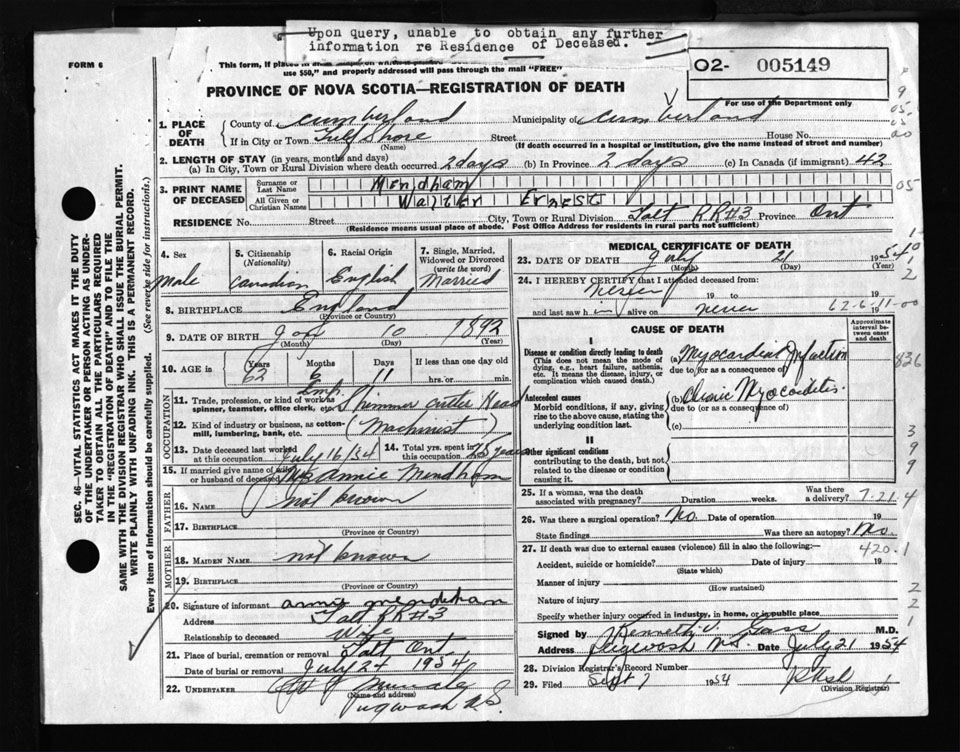 Upon query, unable to obtain any further
information re Residence of Deceased.
FORM 6
use $50," and properly addressed will pass through the mail "FREE"
O2- 005149
PROVINCE OF NOVA SCOTIA—REGISTRATION OF DEATH
For use of the Department only
1. PLACE OF DEATH
County of Cumberland Municipality of Cumberland
If in City or Town Gulf Shore Street House No.
(Name) (If death occurred in a hospital or institution, give the name instead of street and number)
2. LENGTH OF STAY (in years, months and days)
(a) In City, Town or Rural Division where death occurred 2 days (b) In Province 2 days (c) In Canada (if immigrant) 42
3. PRINT NAME OF DECEASED
Surname or Last Name Mendham
All Given or Christian Names Walter Ernest
RESIDENCE No. Street City, Town or Rural Division Galt RR#3 Province Ont
(Residence means usual place of abode. Post Office Address for residents in rural parts not sufficient)
4. Sex
Male
5. Citizenship
(Nationality)
Canadian
6. Racial Origin
English
7. Single, Married, Widowed or Divorced
(write the word)
Married
8. BIRTHPLACE England
(Province or Country)
9. DATE OF BIRTH Jan 10 1892
(Month) (Day) (Year)
10. AGE IS Years Months Days If less than one day old
62 6 11 hrs. or min.
OCCUPATION
11. Trade, profession, or kind of work as spinner, teamster, office clerk, etc.
12. Kind of industry or business, as cotton-mill, lumbering, bank, etc. (Machinist)
13. Date deceased last worked at this occupation July 16/54
14. Total yrs. spent in this occupation years
15. If married give name of wife or husband of deceased Annie Mendham
FATHER
16. NAME Not known
17. BIRTHPLACE
(Province or Country)
MOTHER
18. MAIDEN NAME not known
19. BIRTHPLACE
(Province or Country)
20. Signature of informant Annie Mendham
Address Galt RR#3
Relationship to deceased Wife
21. Place of burial, cremation or removal Galt Ont.
Date of burial or removal July 24 1954
22. UNDERTAKER
(Name and address)
Pugwash N.S.
MEDICAL CERTIFICATE OF DEATH
23. DATE OF DEATH July 21 1954
(Month) (Day) (Year)
24. I HEREBY CERTIFY that I attended deceased from:
never 19 to 19
and last saw him alive on never 19
62-6-11-00
CAUSE OF DEATH
Approximate interval between onset and death
I
Disease or condition directly leading to death
(This does not mean the mode of dying, e.g., heart failure, asthenia, etc. It means the disease, injury, or complication which caused death.)
(a) Myocardial Infarction
due to (or as a consequence of)
836
Antecedent causes
Morbid conditions, if any, giving rise to the above cause, stating the underlying condition last.
(b) Chronic Myocarditis.
due to (or as a consequence of)
(c)
II
Other significant conditions
contributing to the death, but not related to the disease or condition causing it.
25. If a woman, was the death associated with pregnancy? Duration weeks. Was there a delivery? 7-21-4
26. Was there a surgical operation? No. Date of operation 19
State findings Was there an autopsy? No
27. If death was due to external causes (violence) fill in also the following:— 420.1
Accident, suicide or homicide? Date of injury 19
(State which)
Manner of injury
(How sustained)
Nature of injury
Specify whether injury occurred in industry, in home, or in public place
Signed by Kenneth M.D.
Address Pugwash N.S. Date July 21 1954
28. Division Registrar's Record Number
29. Filed Sept 7 1954
(Division Registrar)
SEC. 46—VITAL STATISTICS ACT MAKES IT THE DUTY
OF THE UNDERTAKER OR PERSON ACTING AS UNDER-
TAKER TO OBTAIN ALL THE PARTICULARS REQUIRED
IN THE "REGISTRATION OF DEATH" AND TO FILE THE
SAME WITH THE DIVISION REGISTRAR WHO SHALL ISSUE THE BURIAL PERMIT.
WRITE PLAINLY WITH UNFADING INK. THIS IS A PERMANENT RECORD.
Every item of information should be carefully supplied. (See reverse side for instructions).